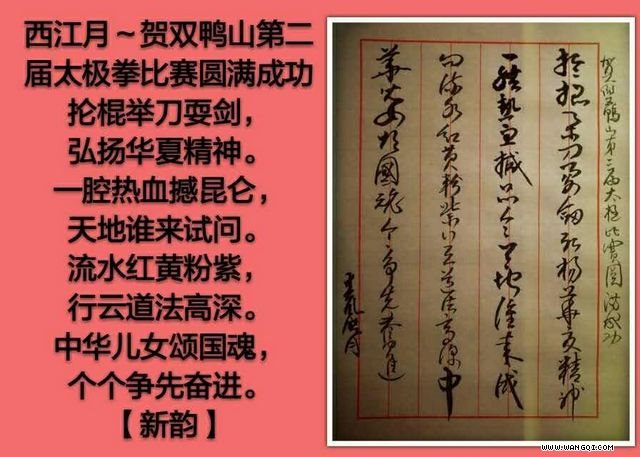 西江月～贺双鸭山第二
届太极拳比赛圆满成功
抡棍举刀耍剑，
弘扬华夏精神。
一腔热血撼昆仑，
天地谁来试问。
流水红黄粉紫，
行云道法高深。
中华儿女颂国魂，
个个争先奋进。
【新韵】
贺双鸭山第二届太极比賽圆满成功
抡棍举刀耍劍弘扬華夏精神
一腔熱血撼昆仑天地谁来试
问流水红黄粉紫行云道法高深中
華儿女颂國魂个个争先奋進
WWW.WANGQI.COM